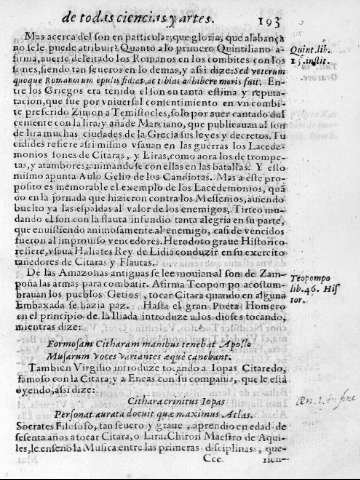 de todas ciencias y artes. 193
Mas acerca del son en particular, que gloria, que alabança
no se le puede atribuir? Quanto a lo primero Quintiliano a-
firma, auerse deleitado los Romanos en los combites con los
sones, siendo tan seueros en lo demas, y assi dize: Sed veterum
quoque Romanorum epulis fides, ac tibias adhibere moris fuit. En-
tre los Griegos era tenido el son en tanta estima y reputa-
tacion, que fue por vniuersal consentimiento en vn combi-
te preferido Zimon a Temistocles, solo por auer cantado dul
cemente con la lira y añade Marciano, que publicauan al son
de lira muchas ciudades de la Grecia sus leyes y decretos. Tu
cidides refiere assi mismo vsauan en las guerras los Lacede-
monios sones de Citaras, y Liras, como aora los de trompe-
tas, y atambores, animandose con ellas en las batallas. Y esso
mismo apunta Aulo Gelio de los Candiotas. Mas a este pro-
posito es memorable el exemplo de los Lacedemonios, quã
do en la jornada que hizieron contra los Messenios, auiendo
buelto ya las espaldas al valor de los enemigos, Tirteo mu-
dando el son con la flauta infundio tanta alegria en su parte,
que enuistiendo animosamente al enemigo, casi de vencidos
fueron al improuiso vencedores. Herodoto graue Historico
refiere, vsaua Haliates Rey de Lidia conduzir en su exercito
tanedores de Citara, y Flautas.
De las Amazonas antiguas se lee mouianse al son de Zam-
poña las armas para combatir. Afirma Teopompo acostum-
brauan los pueblos Getios, tocar Citara quando en alguna
Embaxada se hazia paz. Hasta el gran Poeta Homero
en el principio de la Iliada introduze a los dioses tocando,
mientras dize:
Formosam Citharam manibus tenebat Apollo
Musarum voces variantes æquè canebant.
Tambien Virgilio introduze tocando a Iopas Citaredo,
famoso con la Citara, y a Eneas con su compañia, que le està
oyendo, assi dize:
Cithara crinitus Iopas
Personat aurata docuit quæ maximus Atlas.
Socrates Filosofo, tan seuero y graue, aprendio en edad de
sesenta años a tocar Citara, o Lira. Chiron Maestro de Aqui-
les, le enseñò la Musica entre las primeras disciplinas, que-
Ccc rien-
Quint. lib.
1. instit.
Teopompo
lib. 46. His
tor.
Æn. 1. in fine